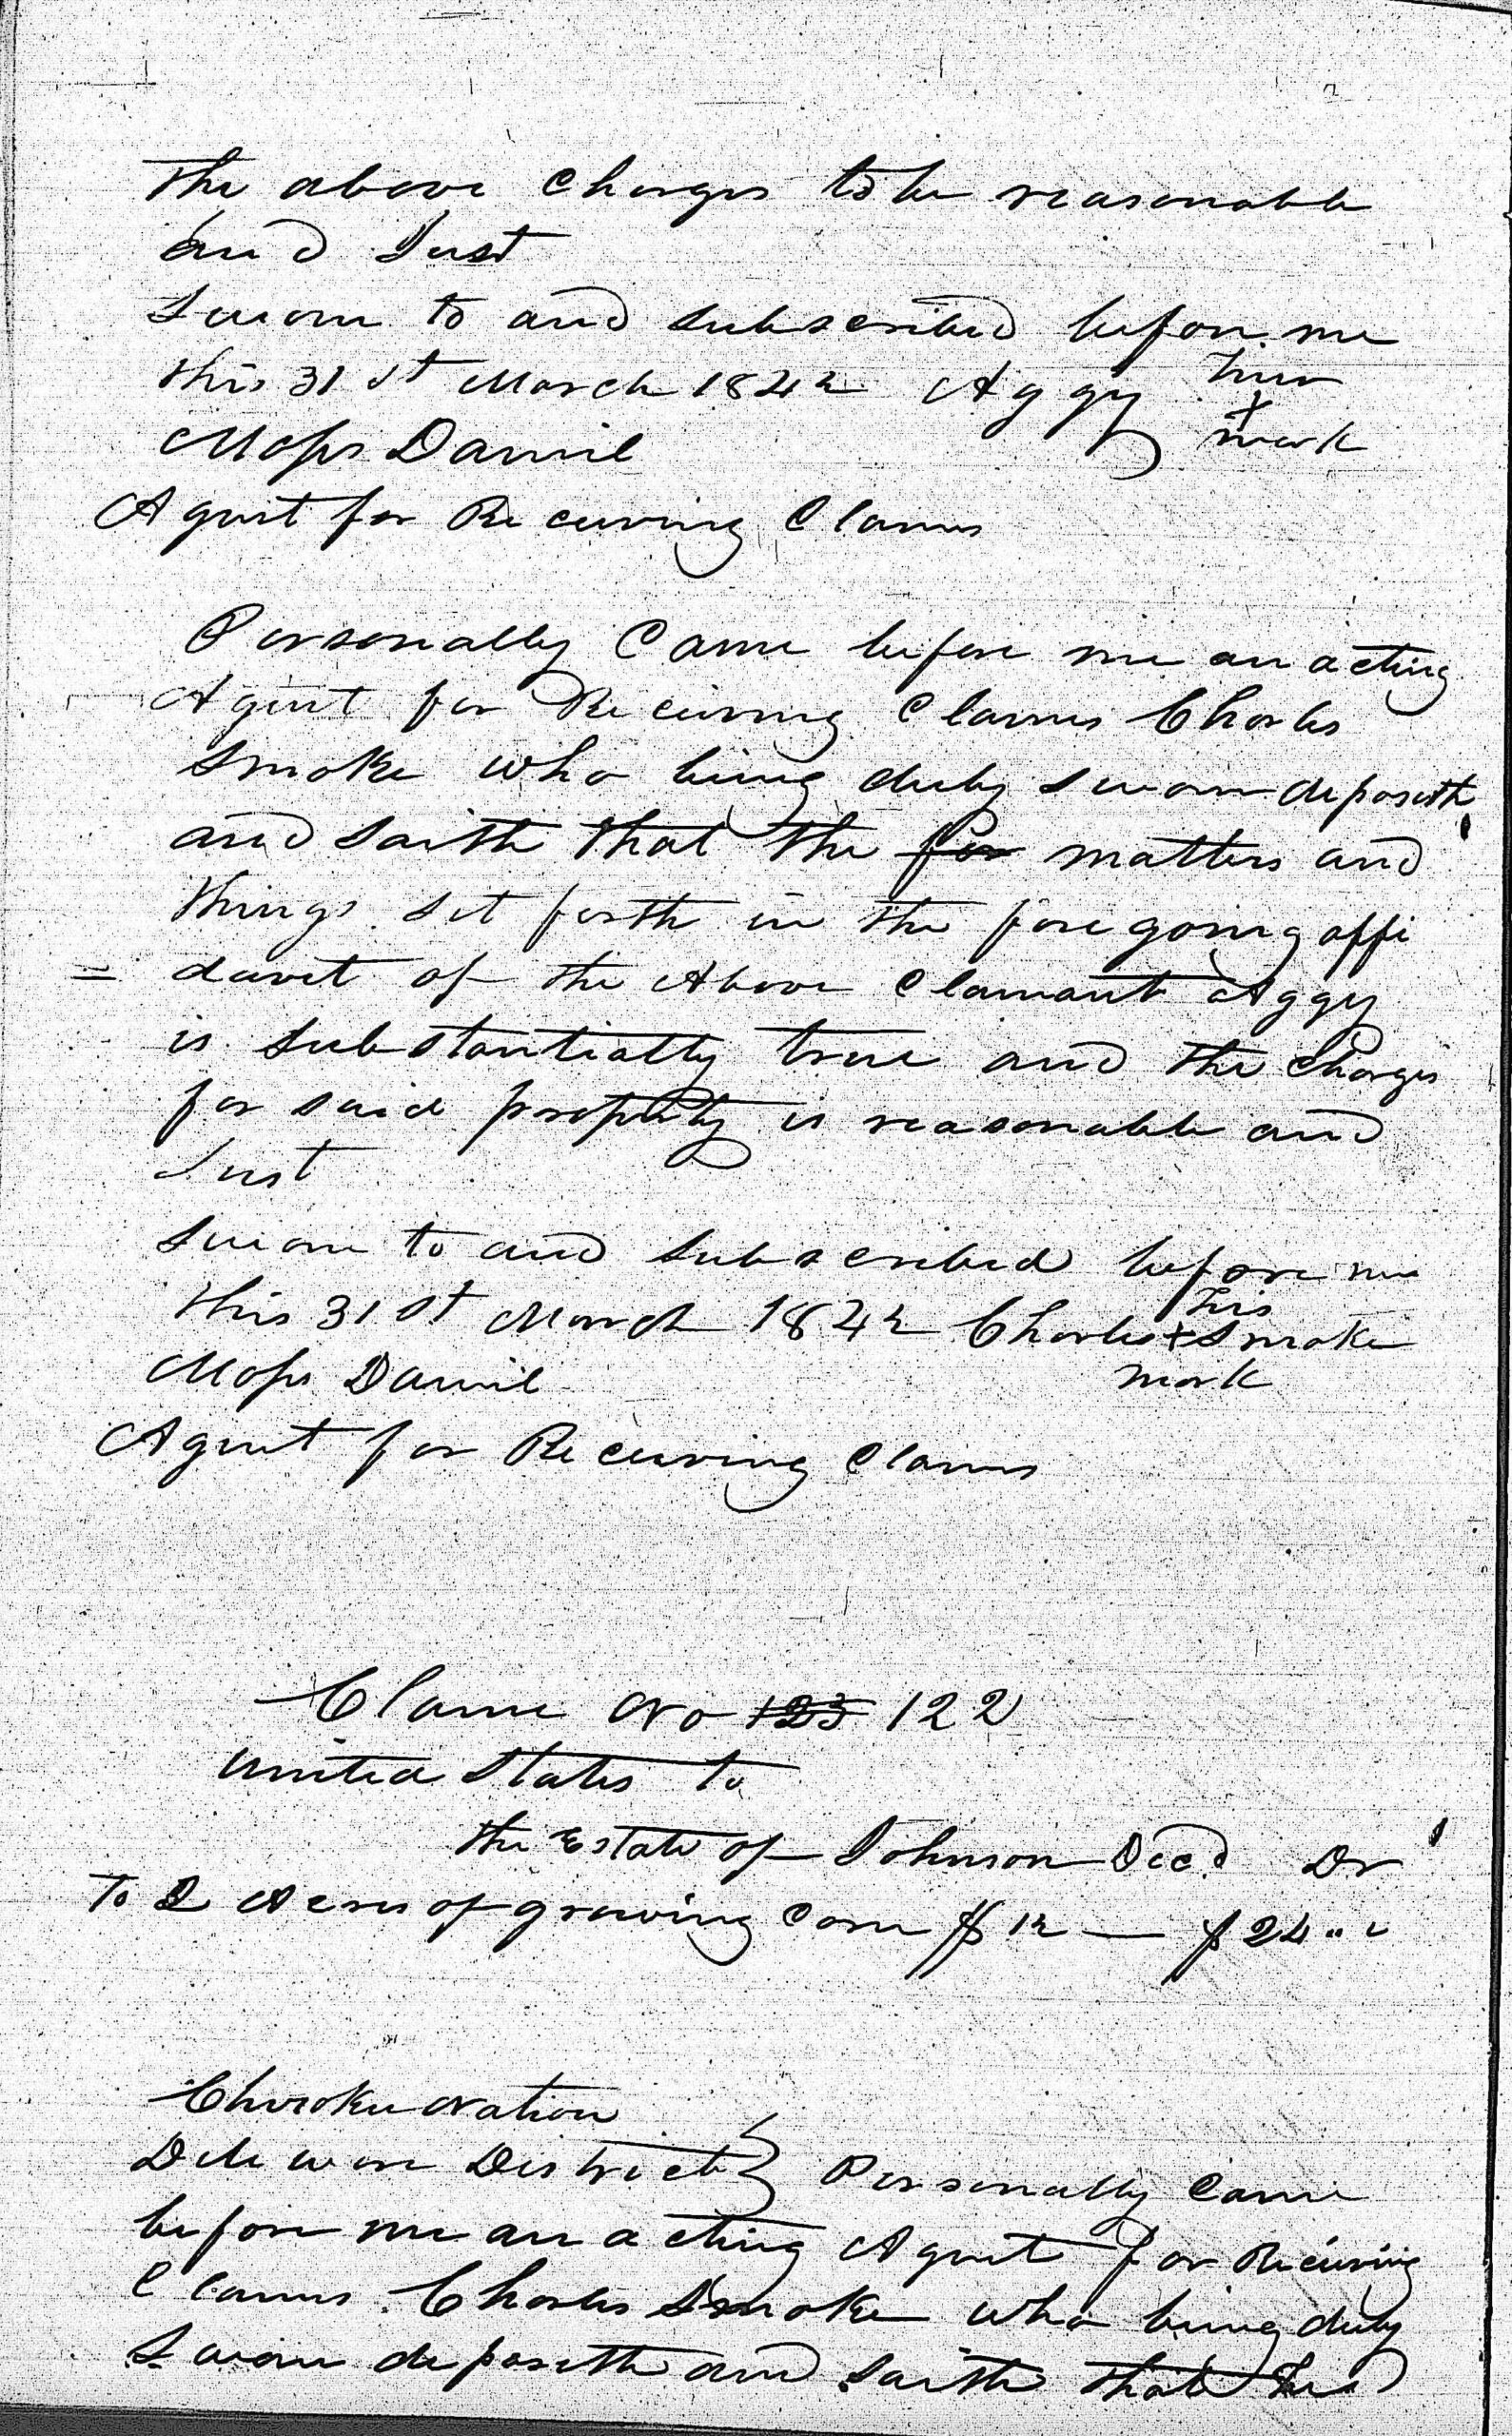 the above charges to be reasonable
and Just
Sworn to and subscribed before me
this 31st March 1842 Aggy her
x
mark
Moses Daniel
Agent for Receiving Claims
Personally Came before me an acting
Agent for Receiving Claims Charles
Smoke who being duly sworn deposeth
and saith that the for matters and
things set forth in the fore going affi
= davit of the Above Claimant Aggy
is substantially true and the charges
for said property is reasonable and
Just
Sworn to and subscribed before me
this 31st March 1842 Charles his x Smoke
mark
Moses Daniel
Agent for Receiving Claims
Claim No 123 122
United States to
the Estate of Johnson Decd Dr
To 2 Acres of growing Corn $12 — $24
Cherokee Nation
Delaware District } Personally Came
before me an acting Agent for Receiving
Claims Charles Smoke who being duly
Sworn deposeth and saith that the